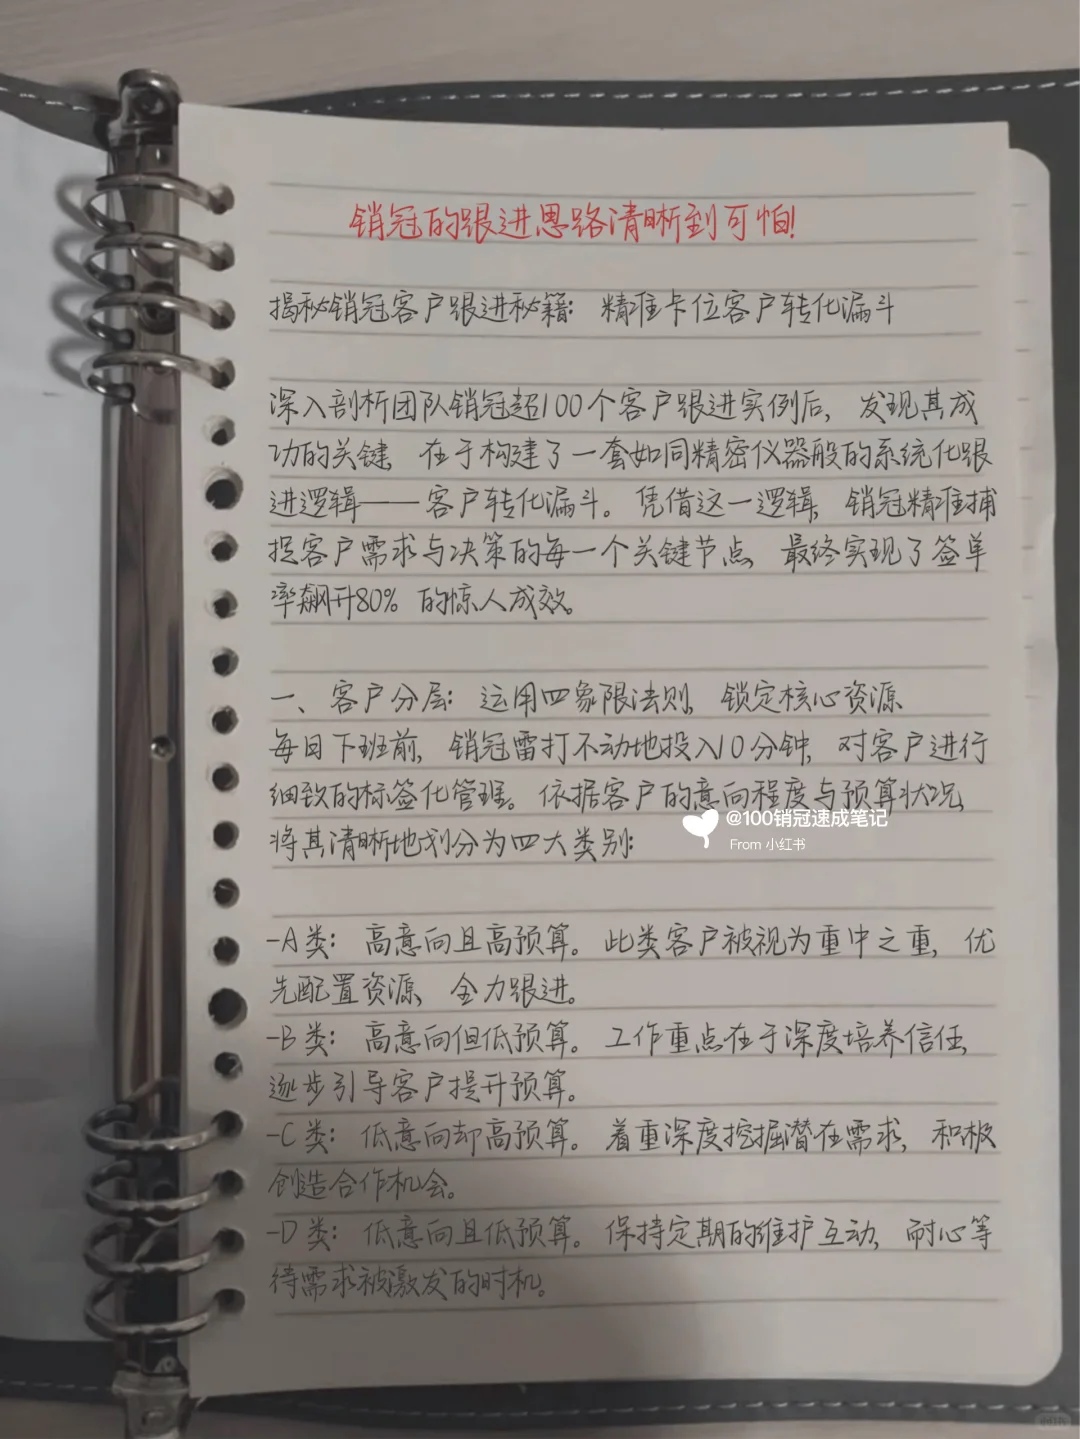 销冠的跟进思路清晰到可怕!
揭秘销冠客户跟进秘籍: 精准卡位客户转化漏斗
深入剖析团队销冠超100个客户跟进实例后, 发现其成
功的关键, 在于构建了一套如同精密仪器般的系统化跟
进逻辑——客户转化漏斗。凭借这一逻辑, 销冠精准捕
捉客户需求与决策的每一个关键节点, 最终实现了签单
率飙升80% 的惊人成效。
一、客户分层: 运用四象限法则, 锁定核心资源
每日下班前, 销冠雷打不动地投入10分钟, 对客户进行
细致的标签化管理。依据客户的意向程度与预算状况,
将其清晰地划分为四大类别:
@100销冠速成笔记
From 小红书
-A类: 高意向且高预算。此类客户被视为重中之重, 优
先配置资源, 全力跟进。
-B类: 高意向但低预算。工作重点在于深度培养信任,
逐步引导客户提升预算。
-C类: 低意向却高预算。着重深度挖掘潜在需求, 积极
创造合作机会。
-D类: 低意向且低预算。保持定期的维护互动, 耐心等
待需求被激发的时机。